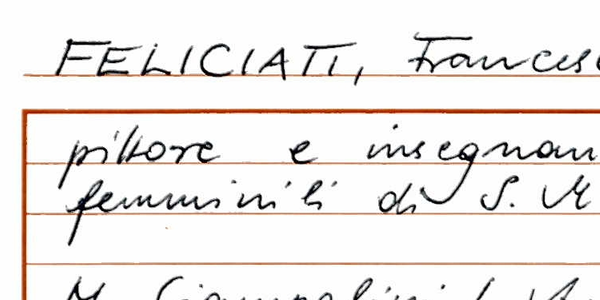 FELICIATI, Frances
pittore e insegnan
femminili di S. M
M. Ciampolini